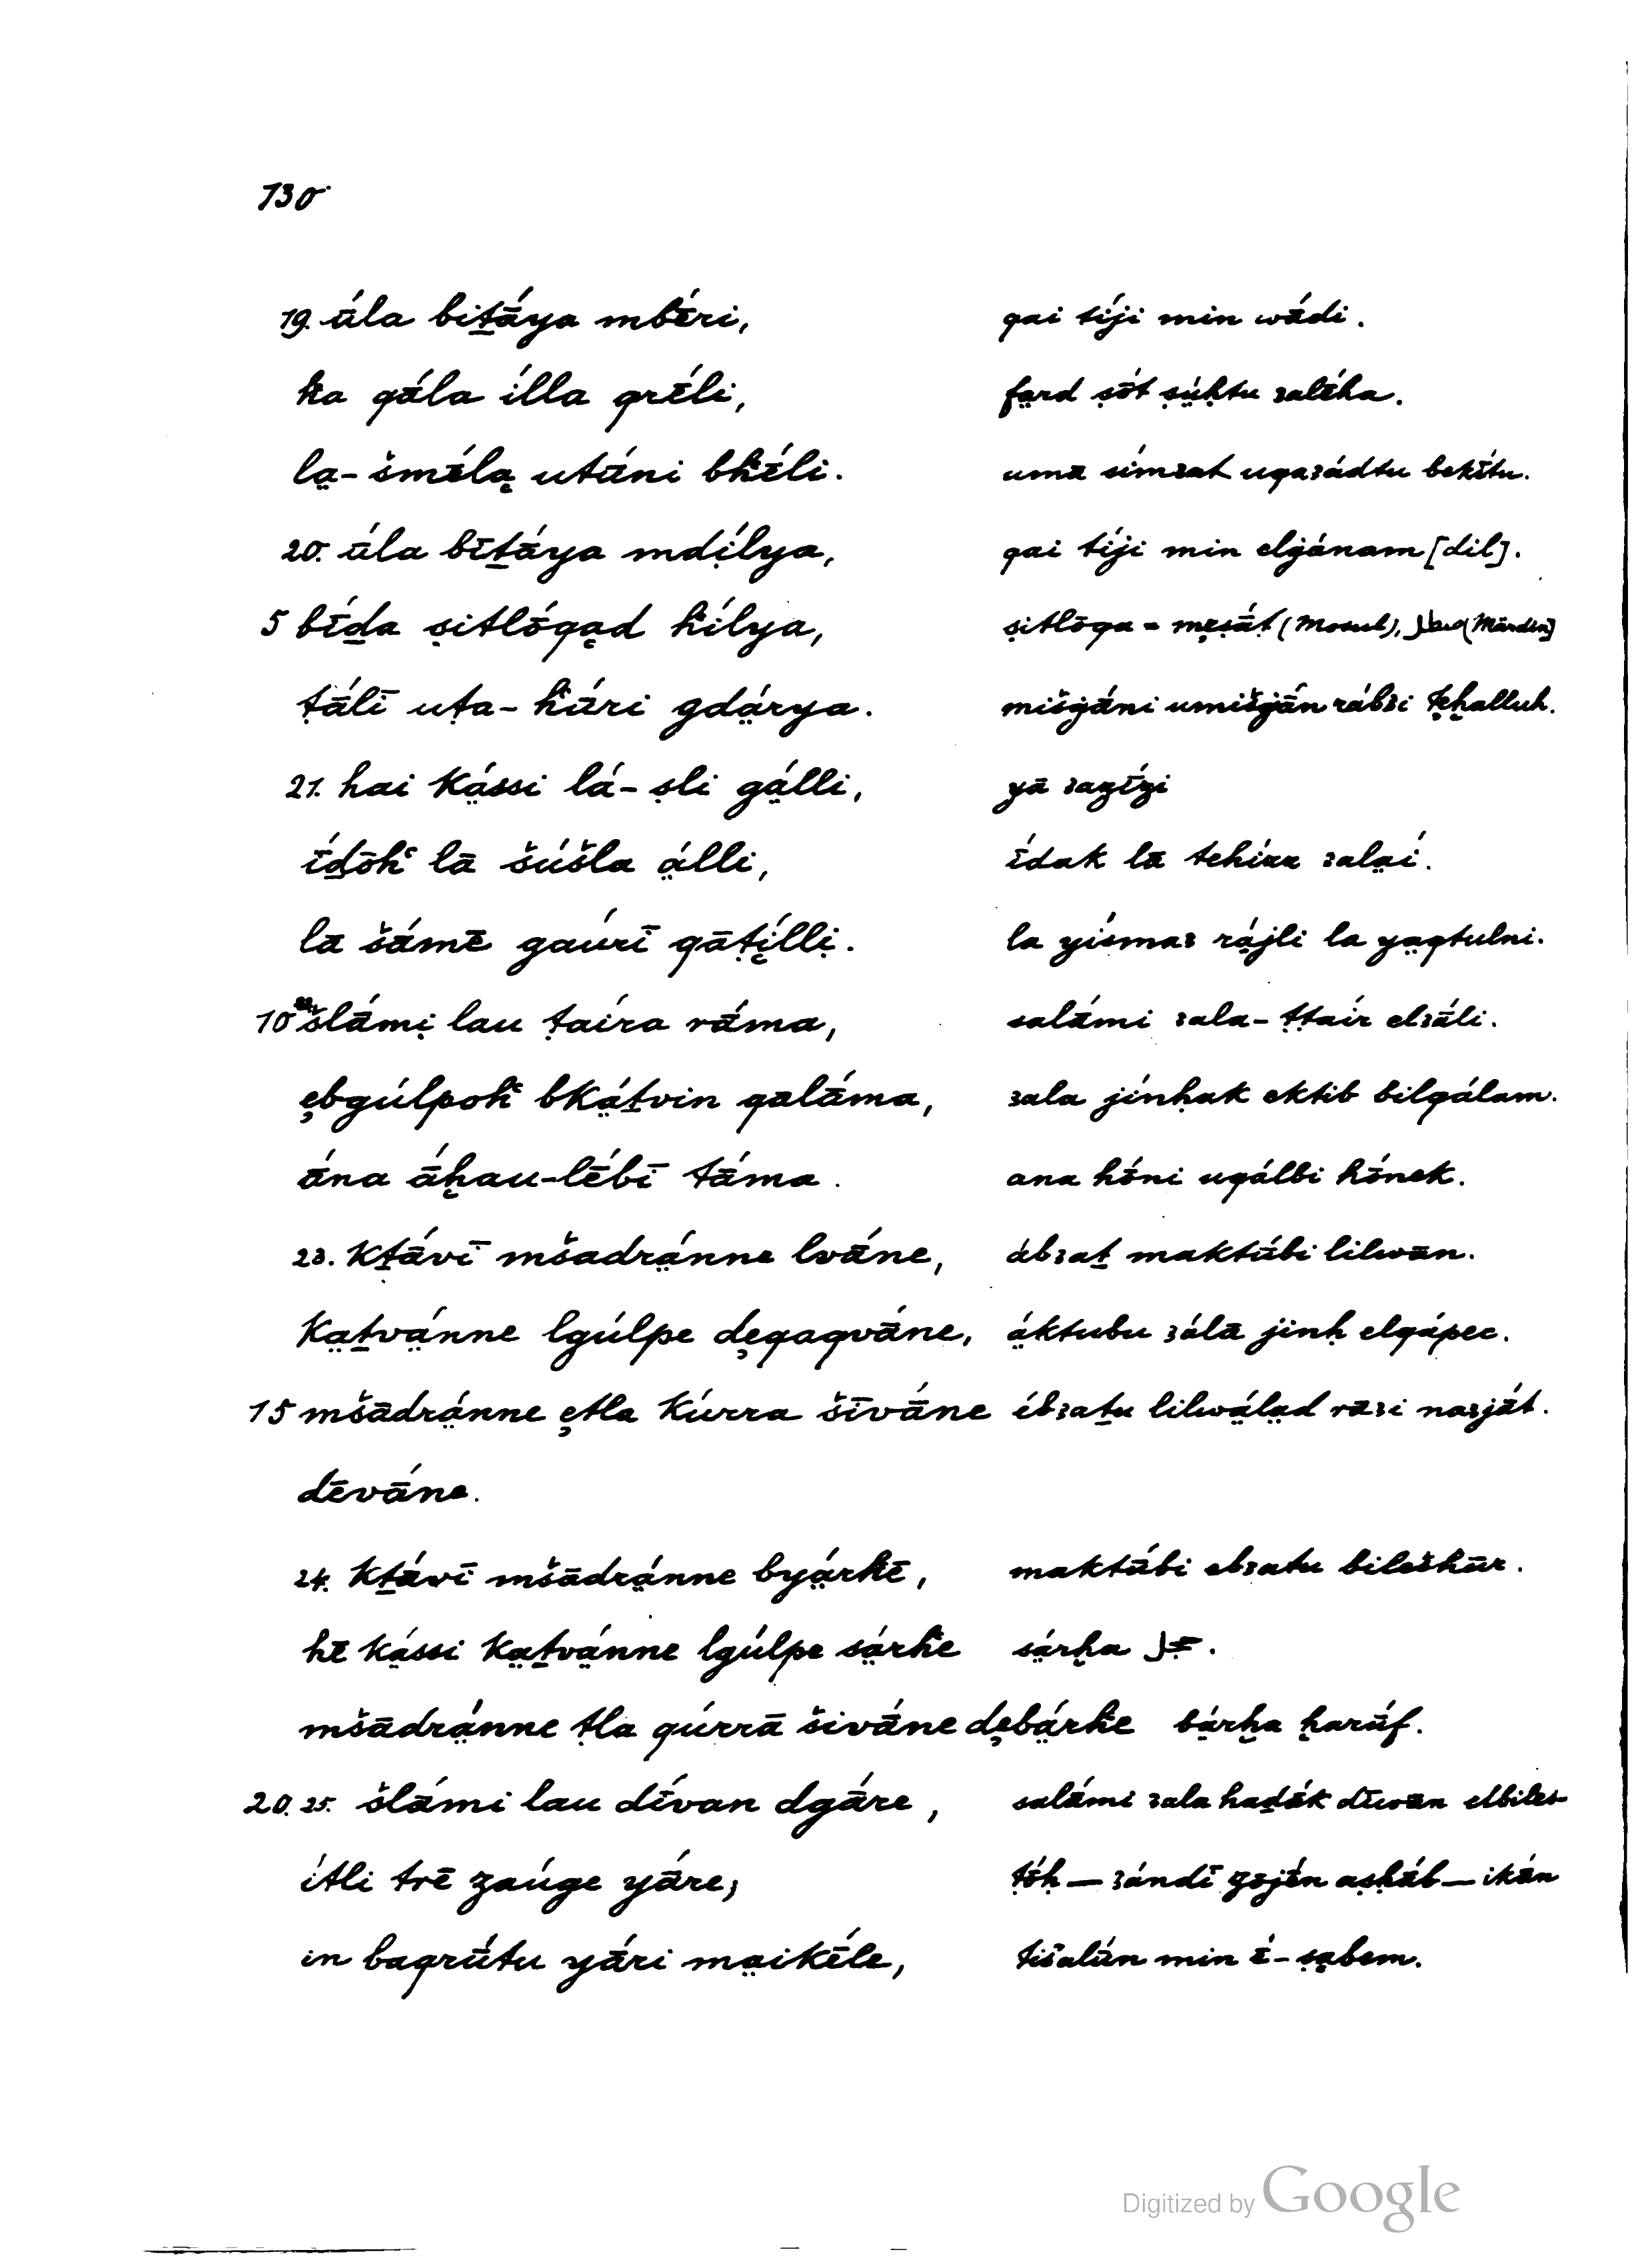 130
19. ū́la biṯā́ya mbḗri, qai tíji min wā́di.
ḣa qā́la ílla qrḗli, fa̤rd ṣōt ṣúḥtu ꜣalḗha.
la̤-šmḗla̤ utū́ni bḣḗli. umā símꜣat uqaꜣádtu bekī́tu.
20. ū́la bīṯā́ya mdílya, qai tíji min elġánam [dil].
5 bī́ḏa ṣitlṓqa̤d ḣílya, ṣitlōqa = mẹṣā́ṭ (Mosul), (Mārdīn)
ṭā́lī uṭa-ḣū́ri gdạ́rya. mišġā́ni umišġā́n rábꜣi tẹḫalluh.
21. hai Kạ́ssi lá-ṣli gạ́lli, yā ꜣazī́zi
ī́ḏōḣ lā šúšla ạ́lli, ī́dak lā teházz ꜣalạí.
lā šámē gaúrī qāṭílli. la yísmaꜣ rạ́jli la yạqtulni.
10 šlā́mi lau ṭaíra rā́ma, salā́mi ꜣala-ṭṭaír elꜣā́li.
ẹbgúlpoḣ bKạ́ṯvin qalā́ma, ꜣala jínḥak ektib bilqálam.
ā́na ā́ḫau-lḗbī tā́ma. ana hṓni uqálbi hṓnek.
23. Kṯā́vī mšadrạ́nne lvā́ne, ábꜣaṯ maktū́bi lilwān.
Kạṯvạ́nne lgúlpe dẹqaqvā́ne, ạ́ktubu ꜣálā jinḥ elqápec.
15 mšādrạ́nne ẹtla Kúrra šīvā́ne íbꜣaṯu lilwạ́lạd rāꜣi naꜣját.
dēvā́ne.
24. Kṯā́vī mšādrạ́nne byạ́rḣē, maktū́bi ebꜣatu bilešhūr.
hē Kạ́ssi Kạṯvạ́nne lgúlpe sạ́rḣe sạ́rḫa
mšādrạ́nne ṭla qúrrā šivā́ne dẹbạ́rḣe bạ́rḫa ḫarū́f.
20. 25. šlā́mi lau dī́van dgā́re, salā́mi ꜣala haḏā́k dīwān elbiles-
ítli trē zaúge yā́re; ṭṓḥ — ꜣándī zōjḗn aṣḥā́b — ikā́n
in baqrū́tu yā́ri mạikḗle, tišalū́n min ḗ-ṣạbem.
Digitized by Google